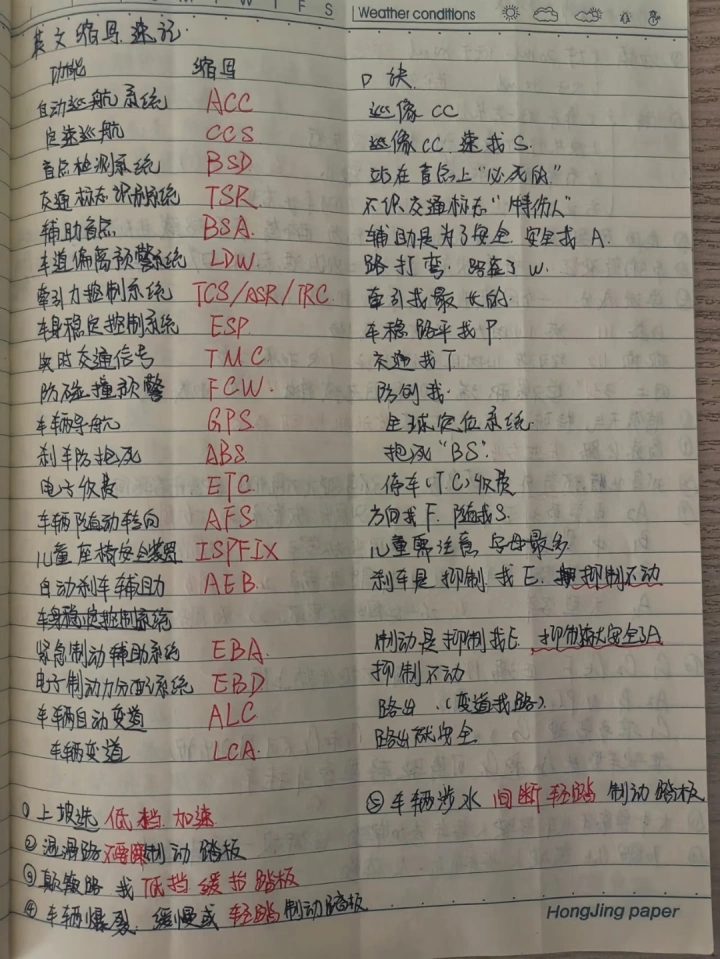 W T F S Weather conditions
英文缩写速记
功能 缩写 口诀
自动巡航系统 ACC 巡像CC
定速巡航 CCS 巡像CC 速找S.
盲点检测系统 BSD 站在盲点上"必死的"
交通标志识别系统 TSR 不识交通标志"特伤人"
辅助盲点 BSA. 辅助是为了安全 安全找A.
车道偏离预警系统 LDW. 路打弯 路在了W.
牵引力控制系统 TCS/ASR/TRC. 牵引找最长的.
车身稳定控制系统 ESP. 车稳路平找P
实时交通信号 TMC 交通找T
防碰撞预警 FCW. 防侧找.
车辆导航 GPS 全球定位系统
刹车防抱死 ABS 抱死"BS".
电子收费 ETC. 停车(T.C)收费
车辆随动转向 AFS 方向找F. 随找S.
儿童座椅安全装置 ISPFIX 儿童需注意 字母最多
自动刹车辅助 AEB. 刹车是抑制 找E. 抑制不动
车身稳定控制系统
紧急制动辅助系统 EBA. 制动是抑制找E.
电子制动力分配系统 EBD 抑制不动
车辆自动变道 ALC 路出.(变道找路).
车辆变道 LCA. 路出就安全
①上坡选 低档.加速
②湿滑路 制动踏板
③颠簸路 找低挡缓抬踏板
④车辆爆裂.缓慢或轻踏制动踏板
⑤车辆涉水 间断轻踏 制动踏板
HongJing paper